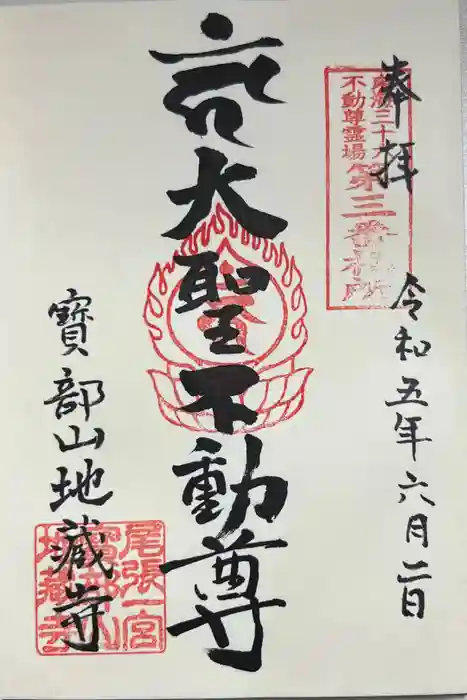 奉拝
東海三十六
不動尊霊場
第三番札所
令和五年六月二日
大聖不動尊
寶部山地藏寺
尾張一宮
寶部山
地藏寺